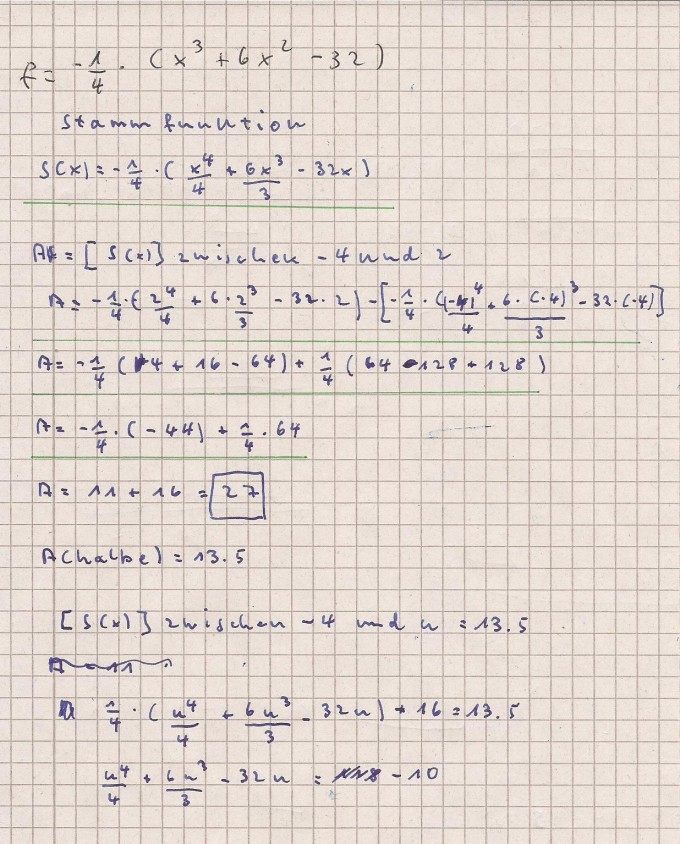 f = -1/4 · (x³ + 6x² - 32)
Stammfunktion
S(x) = -1/4 · (x⁴/4 + 6x³/3 - 32x)
A = [S(x)] zwischen -4 und 2
A = -1/4 · (2⁴/4 + 6·2³/3 - 32·2) - [-1/4 · ((-4)⁴/4 + 6·(-4)³/3 - 32·(-4)]
A = -1/4 (4 + 16 - 64) + 1/4 (64 - 128 + 128)
A = -1/4 · (-44) + 1/4 · 64
A = 11 + 16 = 27
A(halbe) = 13.5
[S(x)] zwischen -4 und u = 13.5
A = 11
1/4 · (u⁴/4 + 6u³/3 - 32u) + 16 = 13.5
u⁴/4 + 6u³/3 - 32u = -10